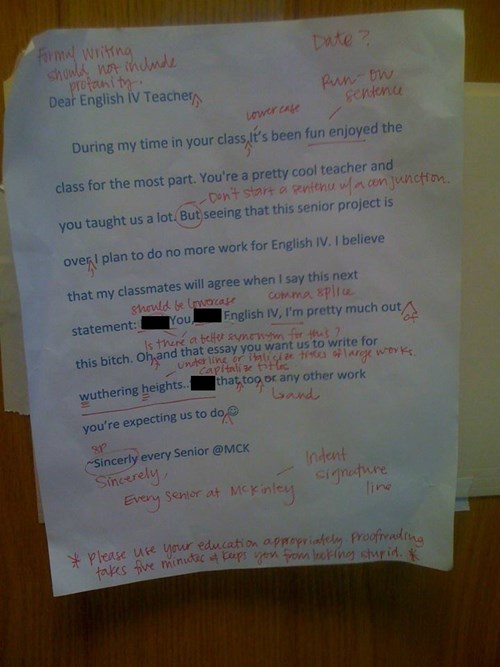 Formal writing
should not include
profanity.
Date?
Run-on
sentence
Dear English IV Teacher
lowercase
During my time in your class, It's been fun enjoyed the
class for the most part. You're a pretty cool teacher and
Don't start a sentence w/ a conjunction.
you taught us a lot. But seeing that this senior project is
over, I plan to do no more work for English IV. I believe
that my classmates will agree when I say this next
should be lowercase
comma splice
statement: You, English IV, I'm pretty much out
of
Is there a better synonym for this?
this bitch. Oh, and that essay you want us to write for
underline or italicize titles of large works.
capitalize titles
wuthering heights.. that too or any other work
you're expecting us to do. ☺
sp
~Sincerly every Senior @MCK
Sincerely,
Every Senior at McKinley
Indent
signature
line
* Please use your education appropriately. Proofreading
takes five minutes & keeps you from looking stupid. *